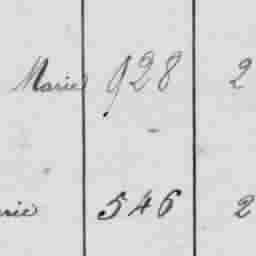 Marie 928 2
rie 546 2